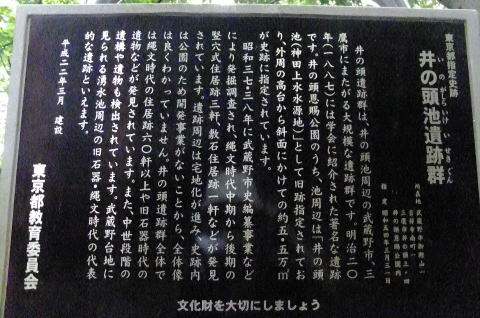 東京都指定史跡
いのがしらいけいせきぐん
井の頭池遺跡群
井の頭遺跡群は、井の頭池周辺の武蔵野市、三
鷹市にまたがる大規模な遺跡群です。明治二〇
年(一八八七)には学会に紹介された著名な遺跡
です。井の頭恩賜公園のうち、池周辺は、井の頭
池(神田上水水源地)として旧跡指定されてお
り、外周の高台から斜面にかけての約五・五万㎡
が史跡に指定されています。
昭和三七・三八年に武蔵野市史編纂事業など
により発掘調査され、縄文時代中期から後期の
竪穴式住居跡三軒、敷石住居跡一軒などが発見
されています。遺跡周辺は宅地化が進み、史跡内
は公園のため開発事業が少ないことから、全体像
は良くわかっていません。井の頭遺跡群全体で
は縄文時代の住居跡六〇軒以上や旧石器時代の
遺物などが発見されています。また、中世段階の
遺構や遺物も検出されています。武蔵野台地に
見られる湧水池周辺の旧石器・縄文時代の代表
的な遺跡といえます。
平成二二年三月 建設
東京都教育委員会
文化財を大切にしましょう